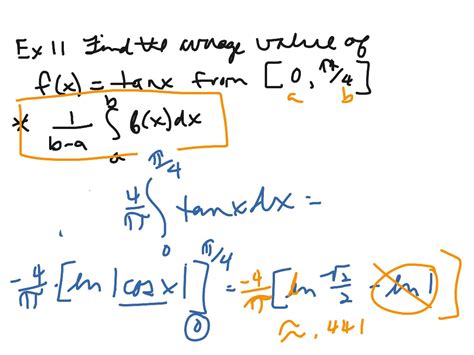 Ex 11 Find the average value of
f(x) = tanx from [0, π/4]
a b
* 1/(b-a) ∫_a^b f(x)dx
4/π ∫_0^{π/4} tanxdx =
-4/π · [ln |cosx|]_0^{π/4} = -4/π [ln √2/2 - ln 1]
≈ .441